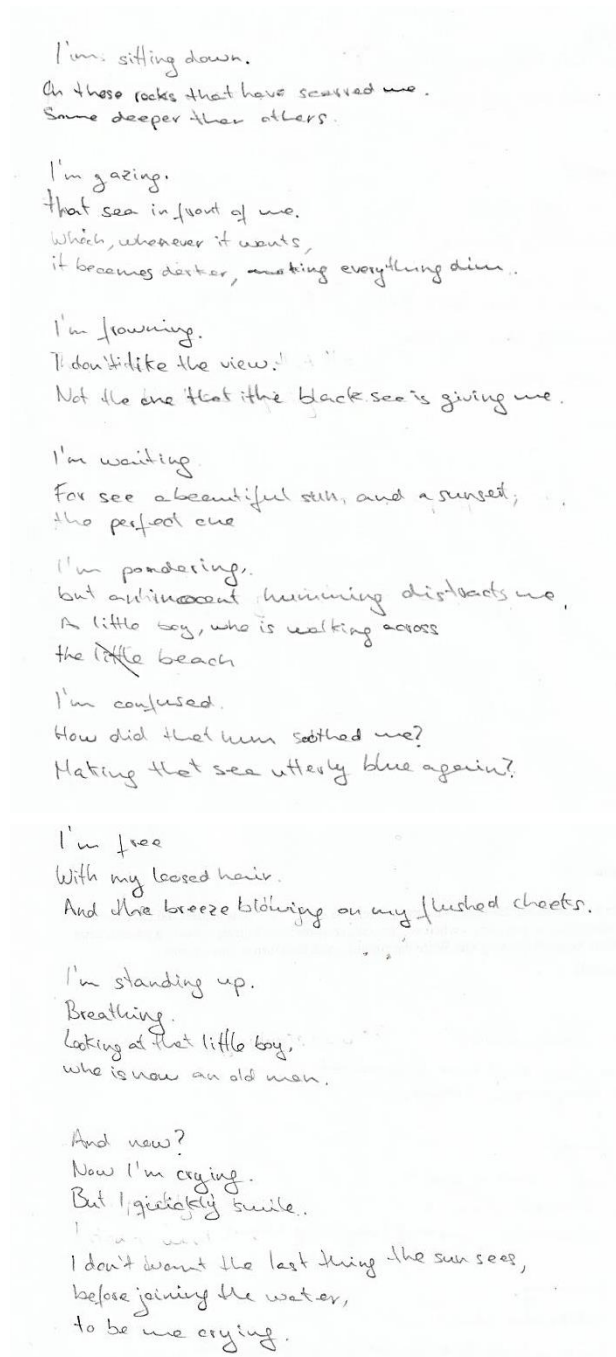 I'm sitting down.
On those rocks that have scarred me.
Some deeper than others.
I'm gazing.
that sea in front of me.
Which, whenever it wants,
it becomes darker, making everything dim.
I'm frowning.
I don't like the view.
Not the one that the black sea is giving me.
I'm waiting
For see a beautiful sun, and a sunset,
the perfect one
I'm pondering,
but an innocent humming distracts me,
A little boy, who is walking across
the little beach
I'm confused.
How did that hum soothed me?
Making that sea utterly blue again?
I'm free
With my loosed hair.
And the breeze blowing on my flushed cheeks.
I'm standing up.
Breathing.
Looking at that little boy,
who is now an old man.
And now?
Now I'm crying.
But I quickly smile.
I don't want the last thing the sun sees,
before joining the water,
to be me crying.